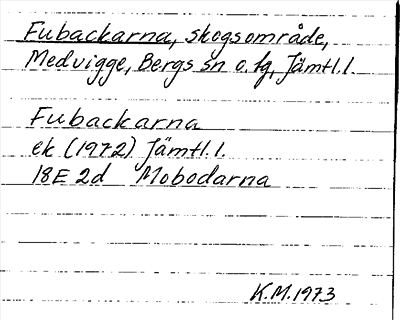 Fubackarna, skogsområde,
Medvigge, Bergs sn o. fg, Jämtl. l.
Fubackarna
ek (1972) Jämtl. l.
18E 2d Mobodarna
K.M. 1973